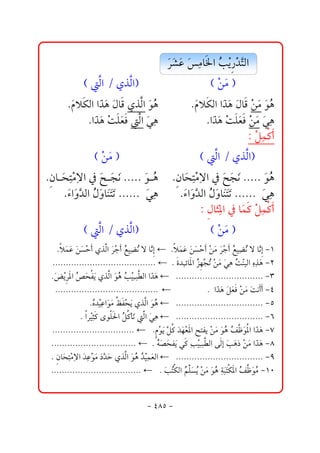 التَّدْرِيْبُ الخَامِسَ عَشَرَ
( مَنْ ) (الَّذي / الَّتِي )
هُوَ مَنْ قَالَ هَذا الكَلامَ. هُوَ الَّذي قَالَ هَذا الكَلامَ.
هِيَ مَنْ فَعَلَتْ هَذا. هِيَ الَّتِي فَعَلَتْ هَذا.
أَكْمِلْ :
(الَّذي / الَّتِي ) ( مَنْ )
هُوَ ..... نَجَحَ فِي الامْتِحَانِ. هُـوَ ..... نَجَـحَ فِي الامْتِحَـانِ.
هِيَ ...... تَتَنَاوَلُ الدَّوَاءَ. هِيَ ...... تَتَنَاوَلُ الدَّوَاءَ.
أَكْمِلْ كَمَا فِي المِثَالِ :
( مَنْ ) (الَّذي / الَّتِي )
١- إِنَّا لا نُضِيعُ أَجْرَ مَنْ أَحْسَنَ عَمَلاً. ← إِنَّا لا نُضِيعُ أَجْرَ الَّذي أَحْسَنَ عَمَلاً.
٢- هَذِهِ البِنْتُ هِيَ مَنْ تُجَهِّزُ المَائِدَةَ . ← ...................................
٣- .............................. ← هَذا الطَّبِيْبُ هُوَ الَّذي يَفْحَصُ المَرِيْضَ.
٤- أَأَنْتَ مَنْ فَعَلَ هَذا . ← ...................................
٥- .............................. ← هُوَ الَّذي يَحْفَظُ مَوَاعِيْدَهُ.
٦- .............................. ← هِيَ الَّتِي تَأْكُلُ الحَلْوى كَثِيْراً .
٧- هَذا المُوَظَّفُ هُوَ مَنْ يَفْتَحُ المَعْهَدَ كُلَّ يَوْمٍ. ← ............................
٨- هَذا مَنْ ذَهَبَ إِلَى الطَّبِيْبِ كَي يَفْحَصَهُ . ← .............................
٩- .............................. ← العَمِيْدُ هُوَ الَّذي حَدَّدَ مَوْعِدَ الامْتِحَانِ .
١٠- مُوَظَّفُ المَكْتَبَةِ هُوَ مَنْ يُسَلِّمُ الكُتُبَ . ← ..............................
- ٤٨٥ -